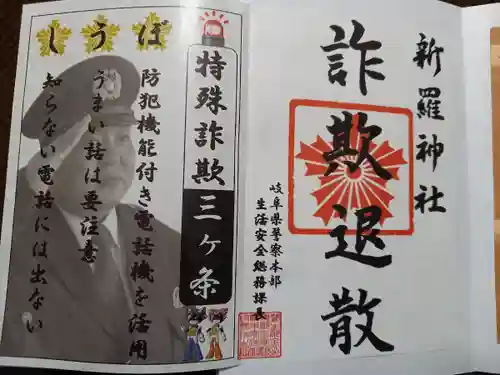 新羅神社
詐欺退散
岐阜県警察本部
生活安全総務課長
特殊詐欺
三ヶ条
しうぼ
防犯機能付き電話機を活用
うまい話は要注意
知らない電話には出ない